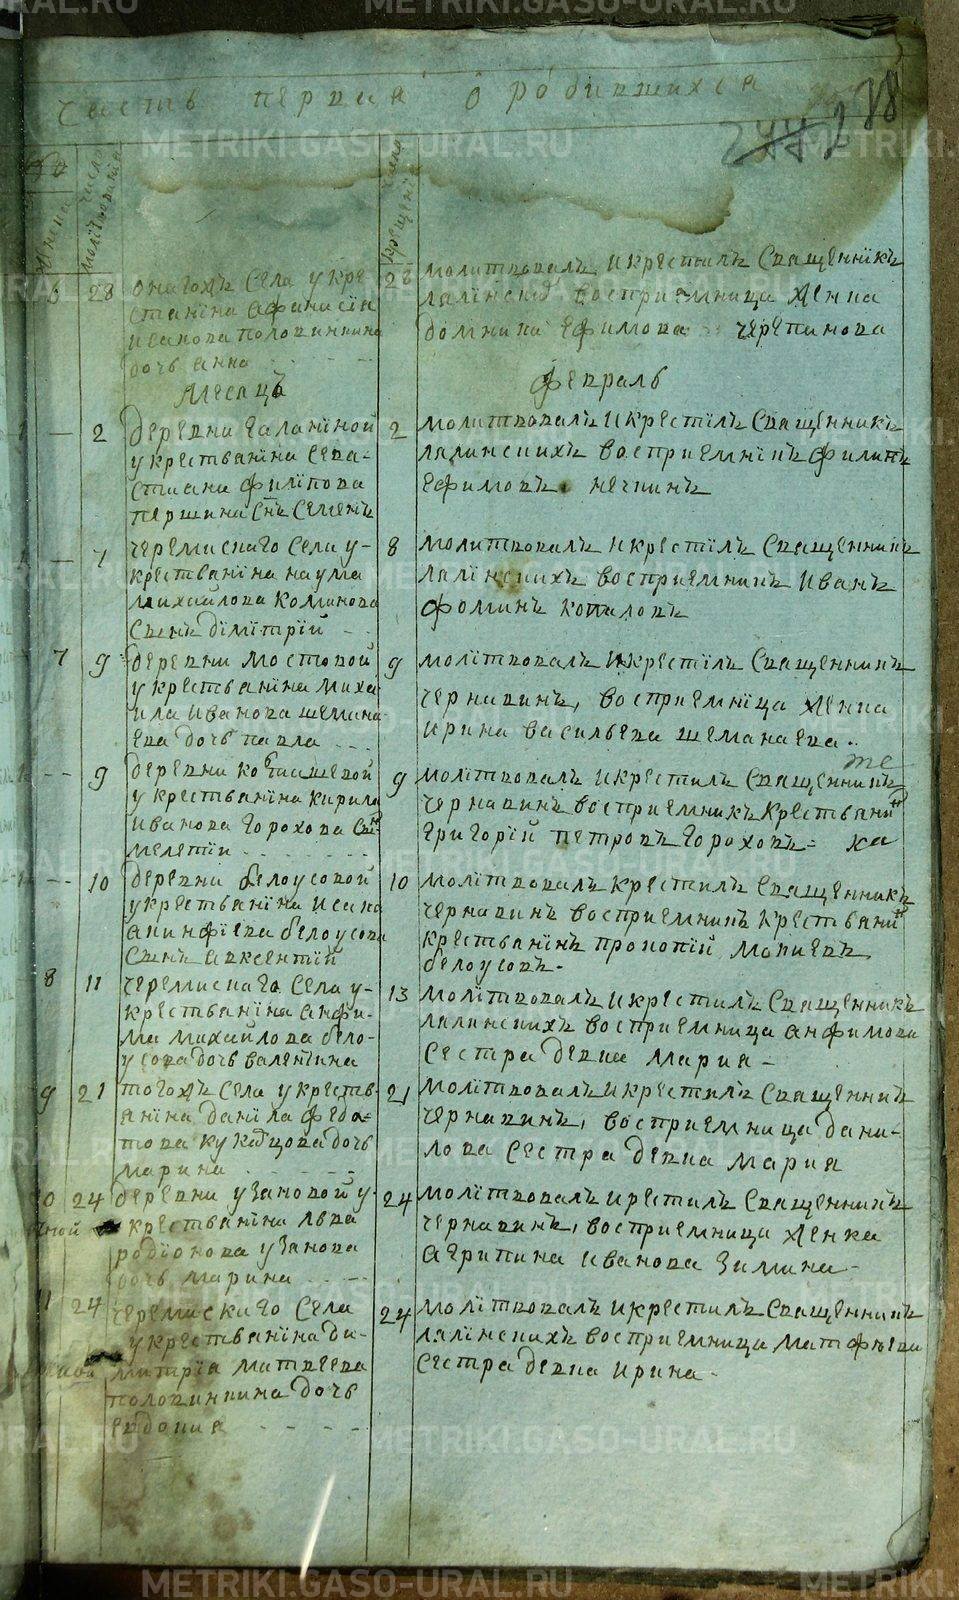 часть первая о родившихся
277
288
женска
число молитвования
число крещения
6 28 онагожъ Села укре-
стянина Афанасiя
иванова половинкина
дочь анна
28 молитвовалъ и крестилъ Священникъ
лялинский восприемница женка
домника Ефимова черепанова
Месяцъ Февраль
1 — 2 деревни галаниной
у крестьвянина Сева-
стиана филiпова
першина Снъ Семенъ
2 молитвовалъ и крестiлъ Священникъ
лялинскихъ восприемнiкъ филипъ
Ефимовъ нечкинъ
— 7 черемискаго Села у-
крестьвянiна наума
михайлова Коминова
Сынъ дiмiтрiй
8 молитвовалъ и крестiлъ Священникъ
лялiнскихъ восприемникъ иванъ
фоминъ копыловъ
7 9 деревни мостовой
у крестьвянiна миха
ила иванова шемана
ева дочь павла
9 молiтвовалъ и крестiлъ Священникъ
чернавинъ, восприемнiца женка
ирина васильева шеманаева
-- 9 деревни косташевой
у крестьвянiна кирила
иванова горохова Снъ
мелетiи
9 молiтвовалъ и крестилъ Священникъ
чернавинъ восприемникъ крестьвянин
григорiй петровъ гороховъ=
те
ка
-- 10 деревни белоусовой
у крестьвянiна исака
акинфiева белоусова
Сынъ авксентiй
10 молiтвовалъ крестилъ Священникъ
чернавинъ восприемникъ крестьвянин
крестьвянiнъ прокопiй мокиевъ
белоусовъ-
8 11 черемискаго Села у-
крестьвянiна анфи-
ма михайлова бело-
усова дочь валентина
13 молiтвовалъ и крестилъ Священникъ
лялинскихъ восприемница анфимова
Сестра девка мария-
9 21 тогожъ Села у крестьв-
янiна данiла федо=
това кукарцова дочь
марина
21 молiтвовалъ и крестилъ Священникъ
чернавинъ, восприемница дани-
лова Сестра девка мария
10 24 деревни узяновой у-
крестьвянiна лва
родiонова узянова
дочь марина
24 молiтвовалъ и рестилъ Священникъ
чернавинъ, восприемница женка
агрипина иванова Зимина-
11 24 черемискаго Села
у крестьвянiна ди-
митрiя матвеева
половинкина дочь
евдокия
24 молiтвовалъ и крестилъ Священникъ
лялiнскихъ восприемница матфѣева
Сестра девка ирина-
METRIKI.GASO-URAL.RU